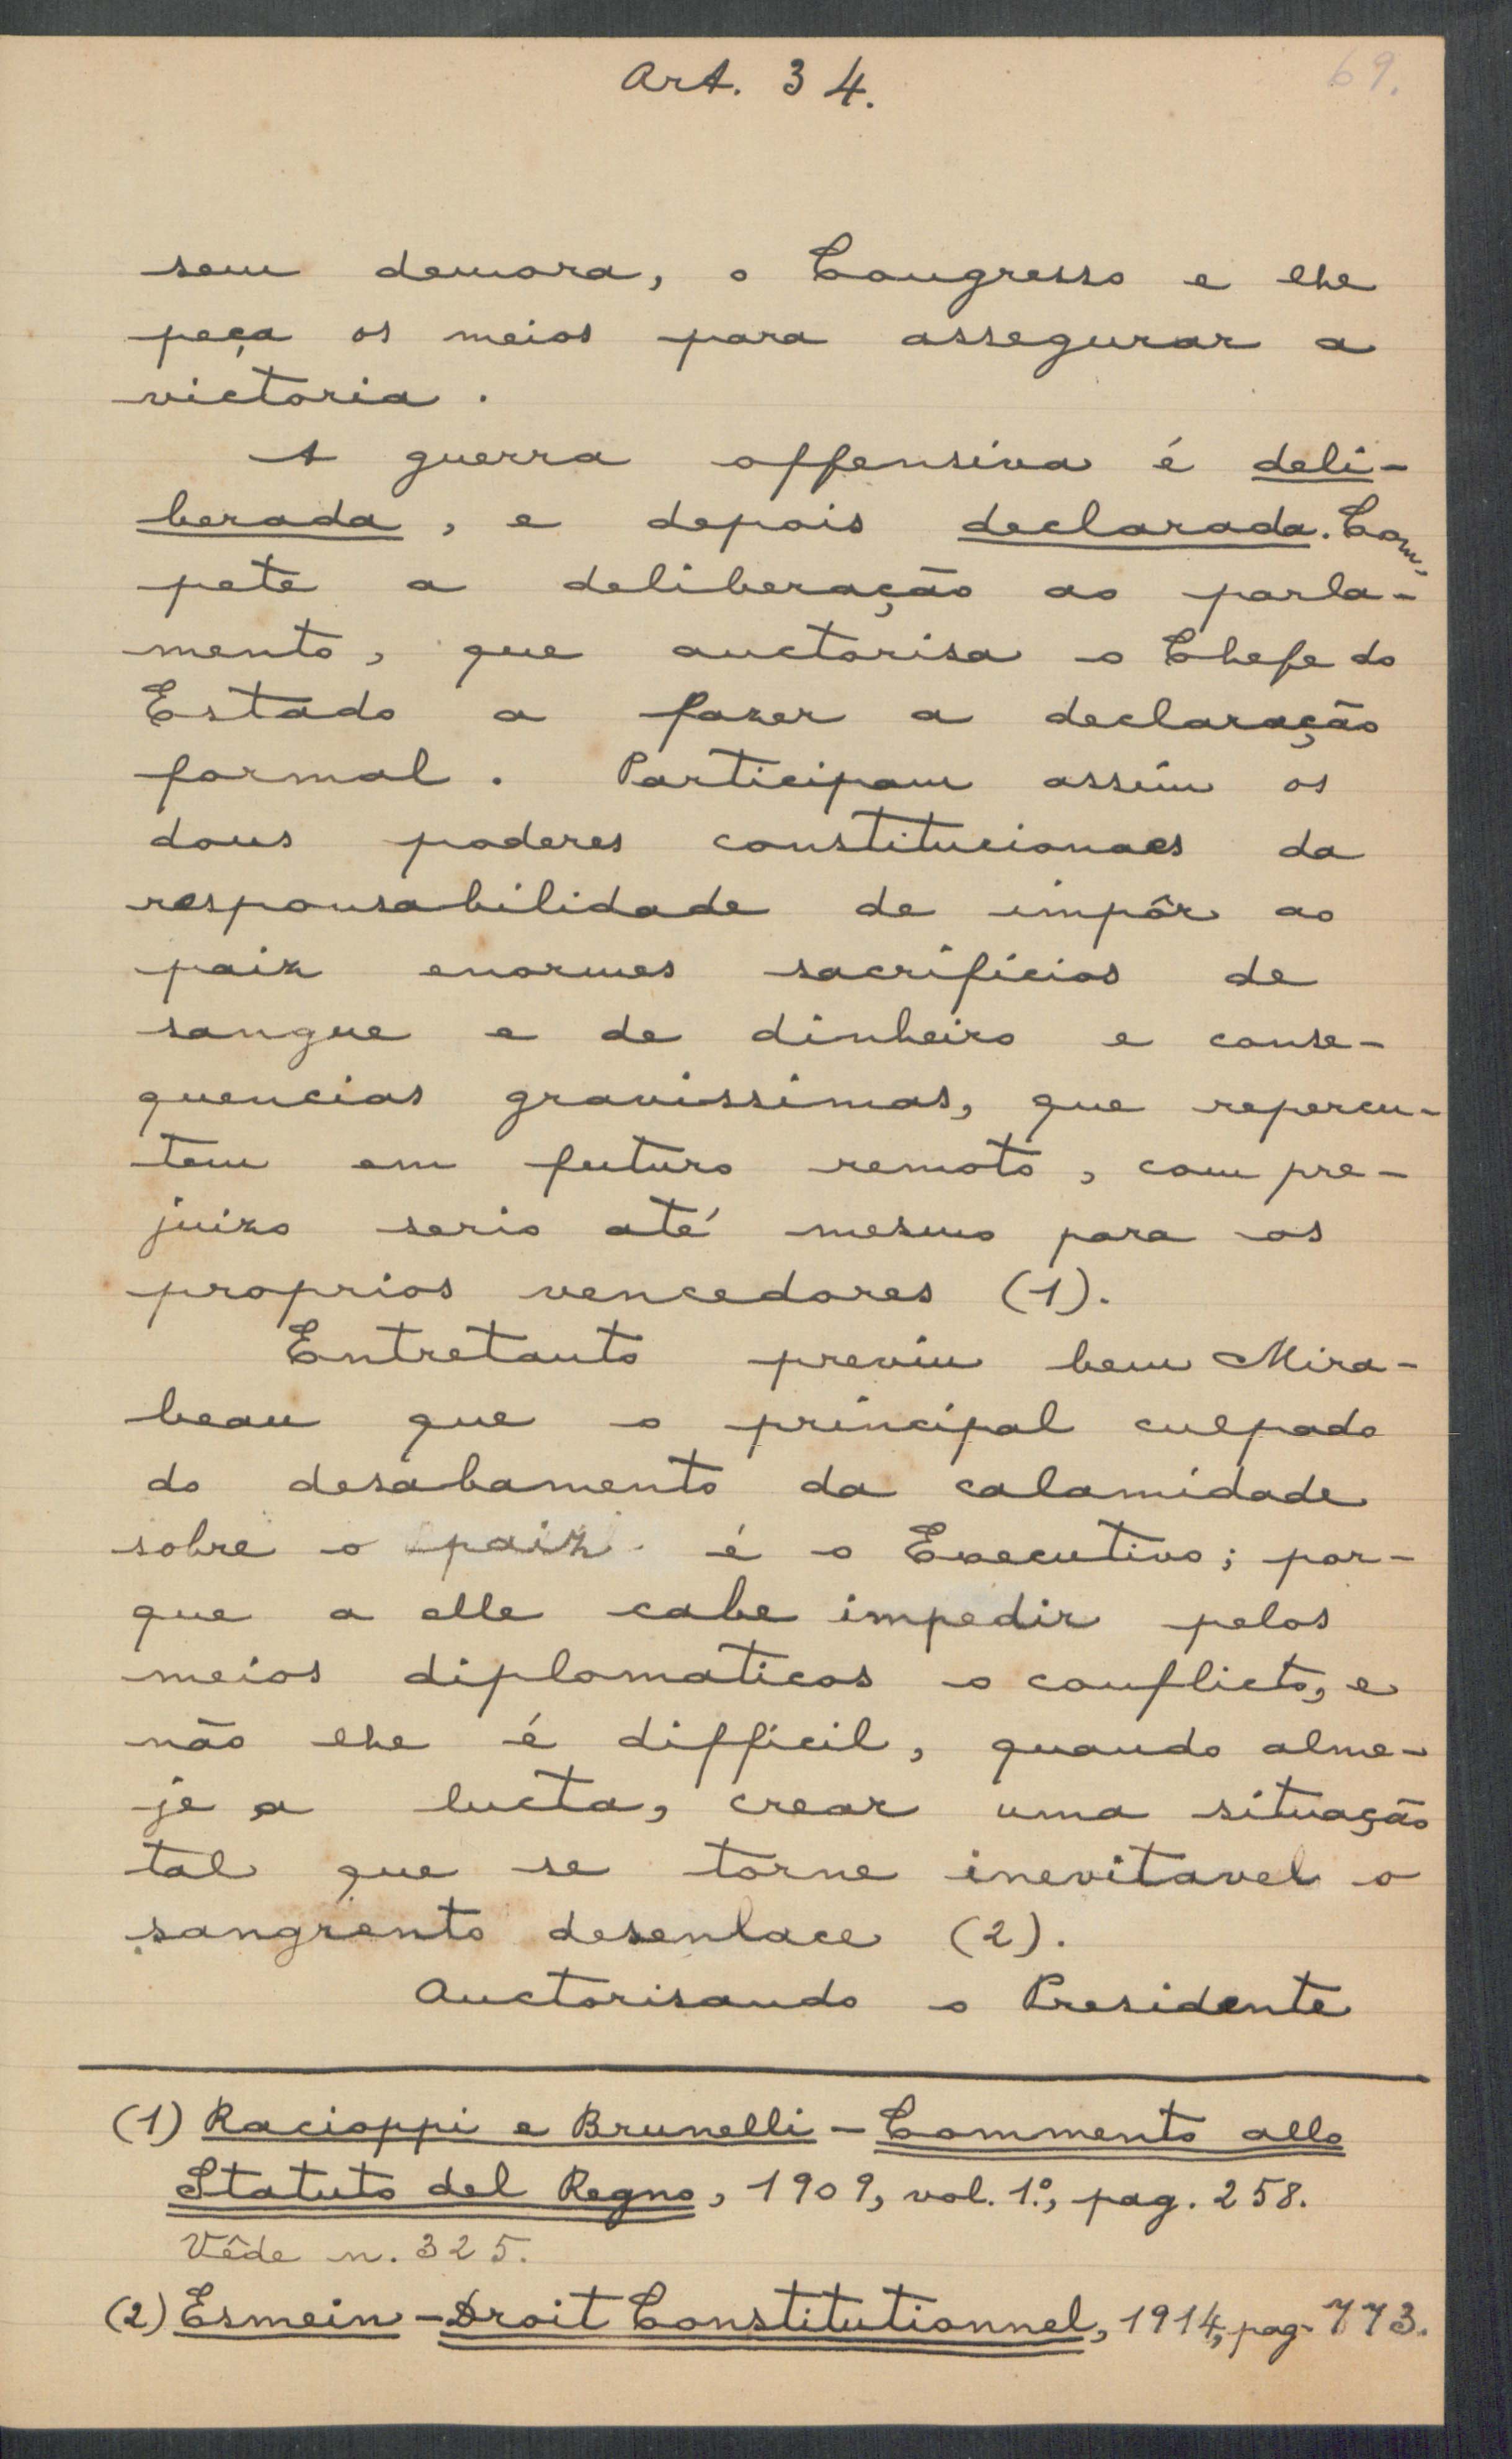 Art. 34.
69.
sem demora, o Congresso e lhe
peça os meios para assegurar a
victoria.
A guerra offensiva é deli-
berada, e depois declarada. Com-
pete a deliberação ao parla-
mento, que auctorisa o Chefe do
Estado a fazer a declaração
formal. Participam assim os
dous poderes constitucionaes da
responsabilidade de impôr ao
paiz enormes sacrificios de
sangue e de dinheiro e conse-
quencias gravissimas, que repercu-
tem em futuro remoto, com pre-
juizo serio até mesmo para os
proprios vencedores (1).
Entretanto previu bem Mira-
beau que o principal culpado
do desabamento da calamidade
sobre o paiz é o Executivo; por-
que a elle cabe impedir pelos
meios diplomaticos o conflicto, e
não lhe é difficil, quando alme-
je a lucta, crear uma situação
tal que se torne inevitavel o
sangrento desenlace (2).
Auctorisando o Presidente
(1) Racioppi e Brunelli - Commento allo
Statuto del Regno, 1909, vol. 1º, pag. 258.
Vêde n. 325.
(2) Esmein - Droit Constitutionnel, 1914, pag. 773.